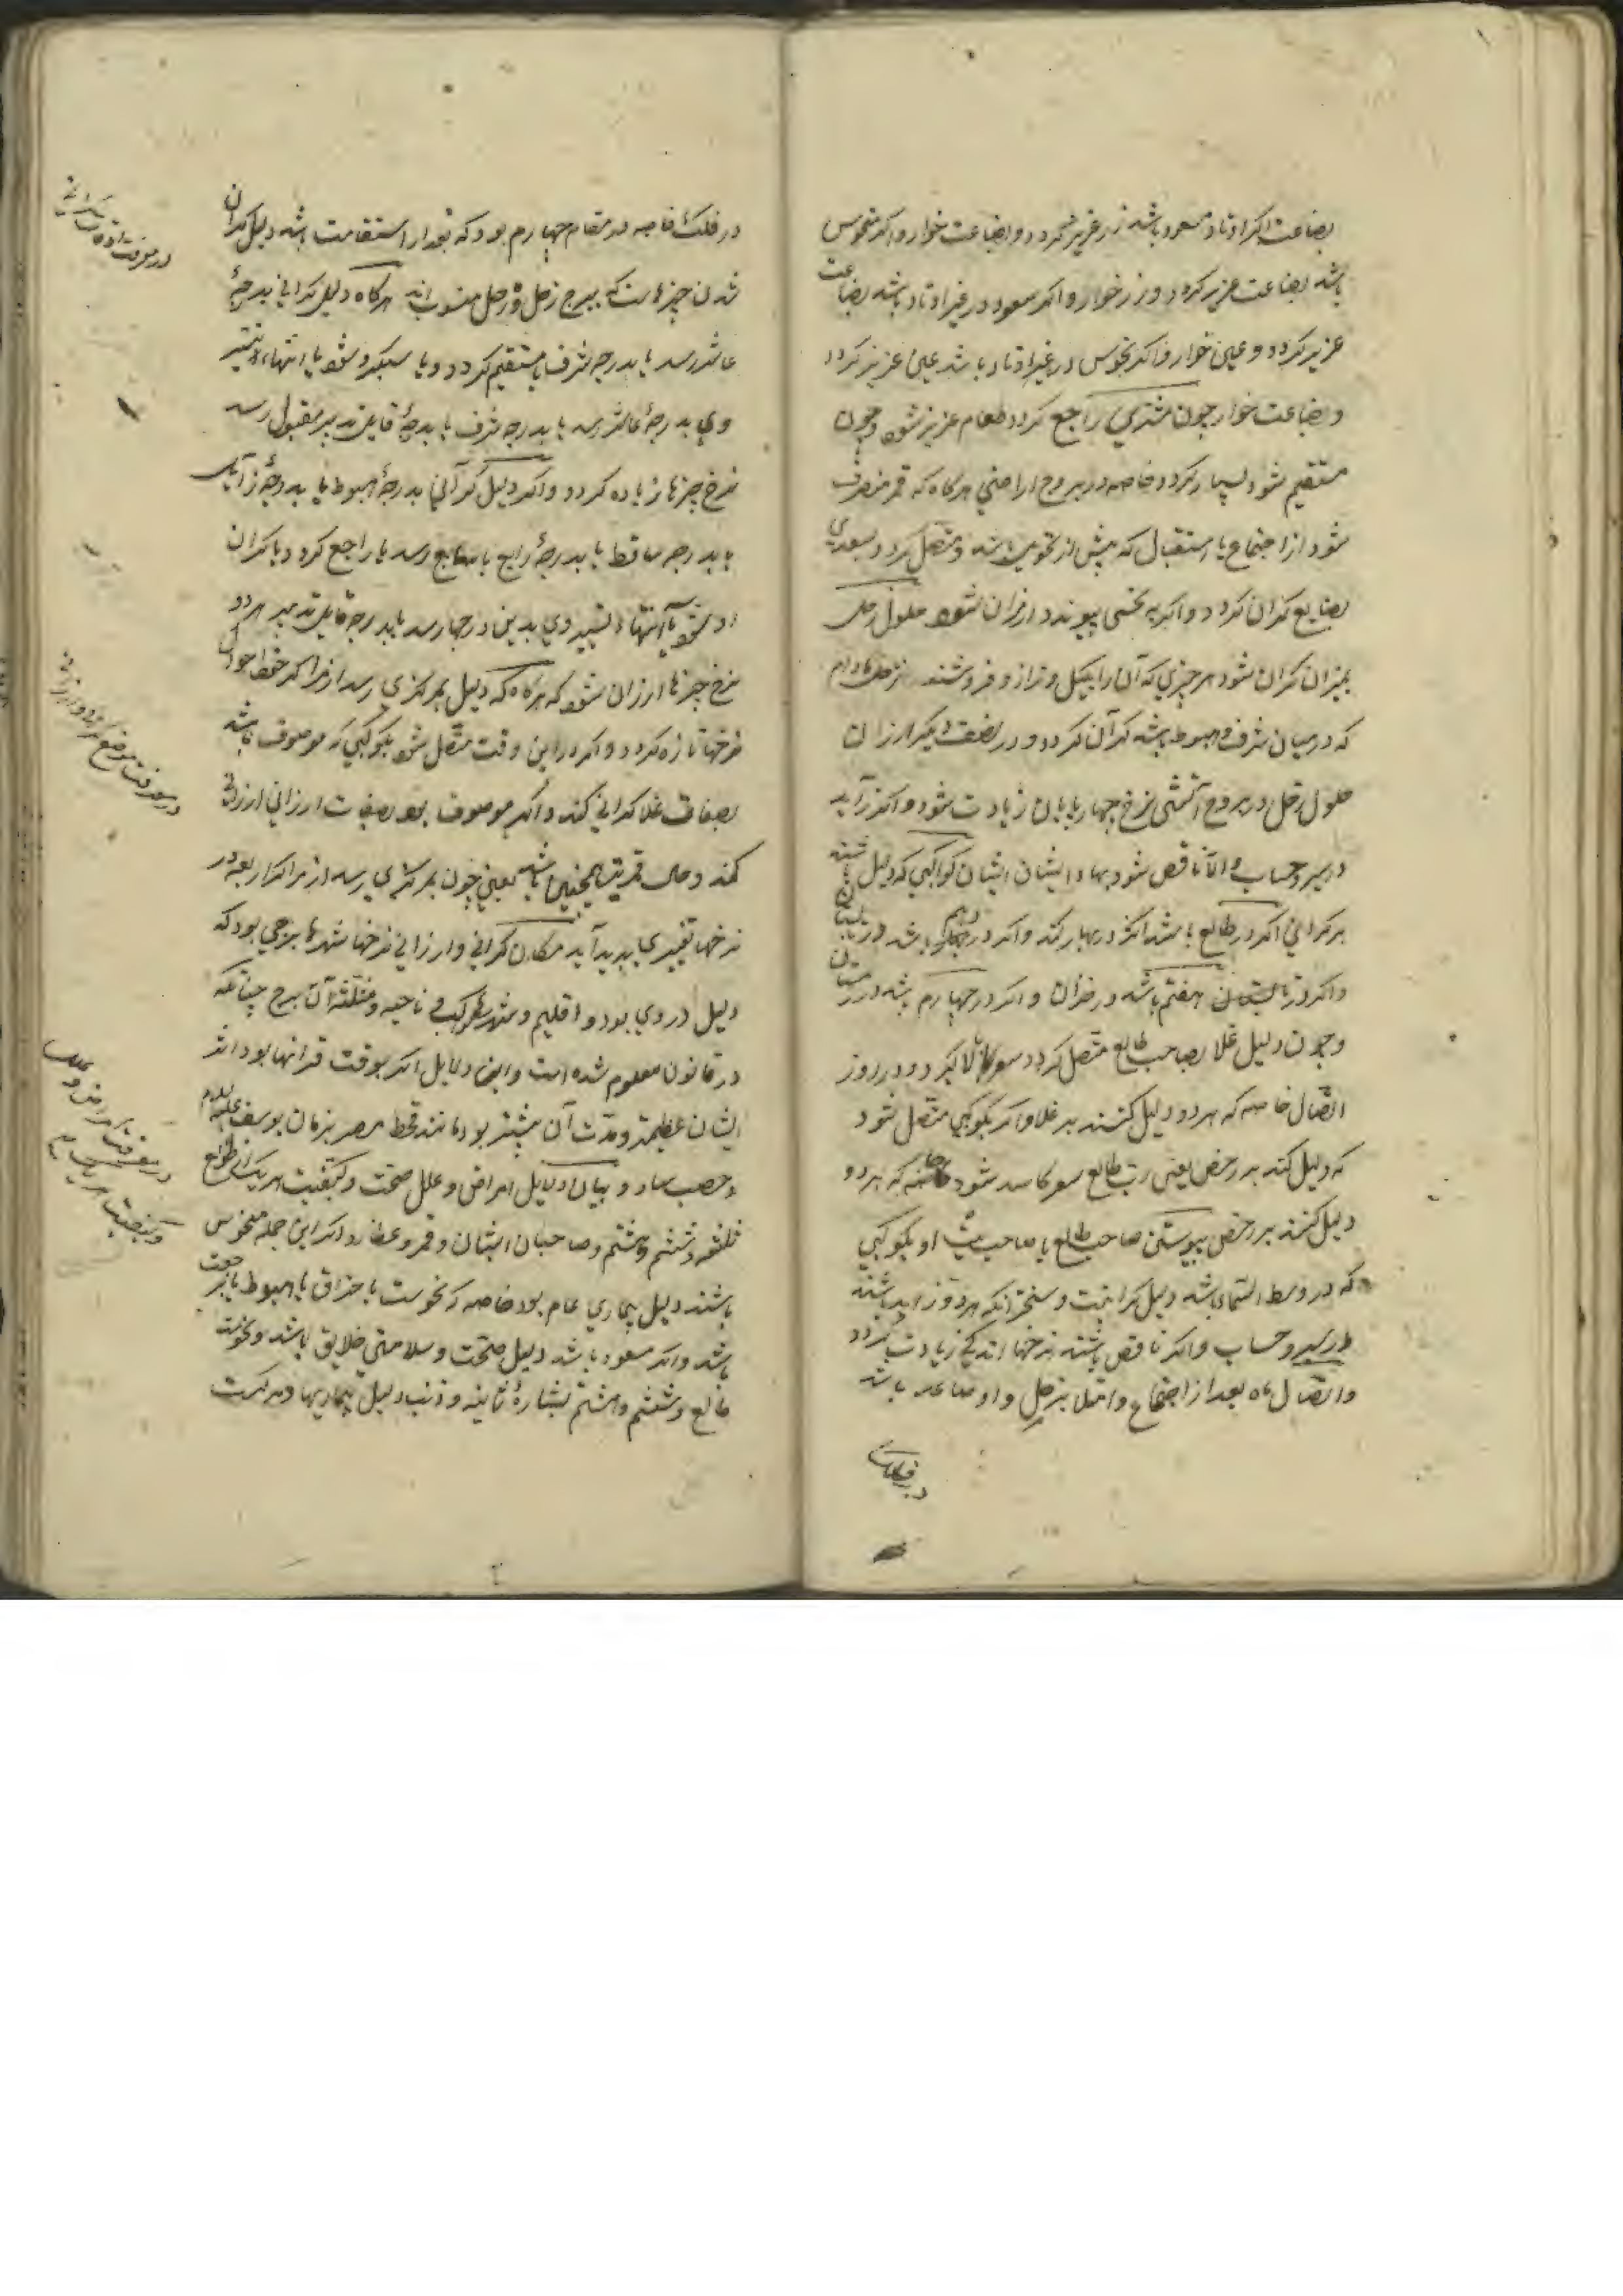 بضاعت اکر اوتاد مسعود باشد زر عزیز کردد و بضاعت خوار و اکر منحوس
باشد بضاعت عزیز کردد و زر خوار و اکر سعود در غیر اوتاد باشد بضاعت
عزیز کردد و عین خوار و اکر نحوس در غیر اوتاد باشد عین عزیز کردد
و بضاعت خوار چون مشتری راجع کردد طعام عزیز شود و چون
مستقیم شود بسیار کردد خاصه در بروج اراضی هرکاه که قمر منصرف
شود از اجتماع یا استقبال که پیش از تحویل باشد و متصل کردد بسعدی
بضایع کران کردد و اکر به نحسی پیوندد ارزان شود حلول زحل
بمیزان کران شود هر چیزی که آن را بکیل و ترازو فروشند زحل مادام
که در میان شرف و هبوط باشد کرآن کردد و در نصف دیکر ارزان
حلول زحل در بروج آتشی نرخ چهارپایان زیادت شود و اکر زاید
در سیر و حساب والا ناقص شود بهاء ایشان ایشان کواکبی که دلیل باشند
بر کرانی اکر در طالع باشد اثر در بهار کند و اکر در دهم باشد در تابستان
و اکر در هفتم باشد در خزان و اکر در چهارم باشد در زمستان
و چون دلیل غلا بصاحب طالع متصل کردد سعر بالا کیرد و در روز
اتصال خاصه که هر دو دلیل کنند بر غلا و اکر بکوکبی متصل شود
که دلیل کند بر رخص یعنی رب طالع سعر کاسد شود خاصه که هر دو
دلیل کنند بر رخص پیوستن صاحب طالع یا صاحب بیت او بکوکبی
که در وسط السماء باشد دلیل کرانیست و سخت‌تر آنکه هر دو زاید باشند
در سیر و حساب و اکر ناقص باشند نرخها اندکی زیادت کردد
و اتصال ماه بعد از اجتماع و امتلا بزحل و او صاعد باشد
در فلک
در فلک خاصه در مقام چهارم بود که بعد از استقامت باشد دلیل کران
شدن چیزهاست که ببرج زحل و زحل منسوب‌اند هرکاه دلیل کرانی بدرجهٔ
عاشر رسد یا بدرجه شرف یا مستقیم کردد و یا سبکرو شود یا انتهاء و تسییر
وی بدرجهٔ عاشر رسد یا بدرجه شرف یا بدرجهٔ قابل تدبیر مقبول رسد
نرخ چیزها زیاده کردد و اکر دلیل کرآنی بدرجهٔ هبوط یا بدرجهٔ زایل
یا بدرجه ساقط یا بدرجهٔ رابع یا سابع رسد یا راجع کردد یا کران
رو شود یا انتهاء و تسییر وی بدین درجها رسد یا بدرجه قابل تدبیر هر دو
نرخ چیزها ارزان شود که هرکاه که دلیل بمرکزی رسد از مراکز خط احوال
نرخها تازه کردد و اکر در این وقت متصل شود بکوکبی که موصوف باشد
بصفات غلا کرانی کند و اکر موصوف بود بصفات ارزانی ارزانی
کند و حال قمر نیز همچنین باشد یعنی چون بمرکزی رسد از مراکز اربعه در
نرخها تغییری پدید آید مکان کرانی و ارزانی نرخها شهرها برجی بود که
دلیل در وی بود و اقلیم و شهرهای کواکب و ناحیه و مثلثهٔ آن برج چنانکه
در قانون معلوم شده است و این دلایل اکر بوقت قرانها بود اثر
ایشان عظیمتر و مدت آن بیشتر بود مانند قحط مصر بزمان یوسف علیه السلام
و صعب بیان دلایل امراض و علل صحت و کیفیت هریک از طالع
و ششم و هشتم و صاحبان ایشان و قمر و عطارد اکر این جمله منحوس
باشند دلیل بیماری عام بود خاصه که نحوست با حتراق یا هبوط یا رجعت
باشد و اکر مسعود باشد دلیل صحت و سلامتی خلایق باشد و نحوست
طالع و ششم و هشتم و ذنب دلیل بیماریها و مرکست
در معرفت اوقات کرانی
در معرفت موضع کرانی و ارزانی
در معرفت امراض و علل
و کیفیت هریک